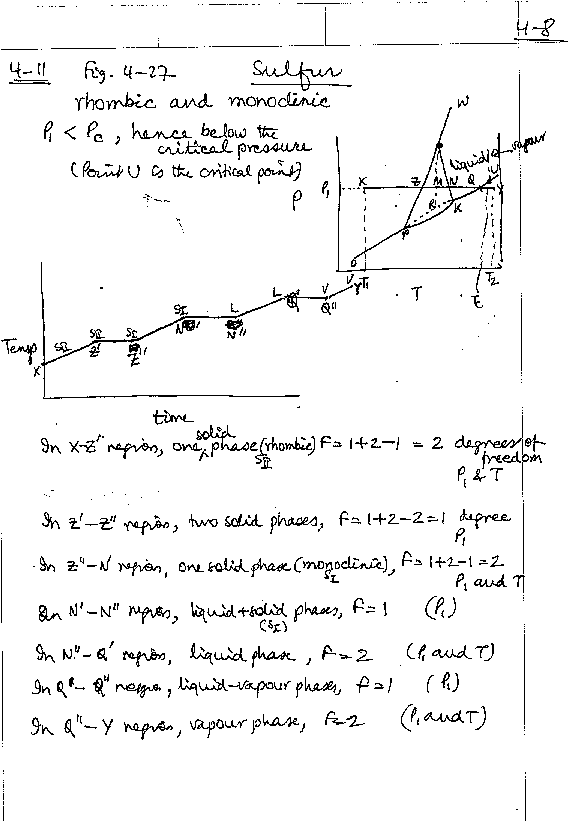 4-8
4-11 Fig. 4-27 Sulfur
rhombic and monoclinic
P₁ < Pc, hence below the
critical pressure
(Point U is the critical point)
W
liquid vapour
P
P₁ X Z M N Q U Y
R K
P
O
V T₁ T Tc T₂
Temp
X SII SII Z' SII Z'' SI N' L N'' L Q' V Q'' V Y
time
In X-Z' region, one solid phase (rhombic) F = 1+2-1 = 2 degrees of
SII freedom
P₁ & T
In Z'-Z'' region, two solid phases, F = 1+2-2 = 1 degree
P₁
In Z''-N' region, one solid phase (monoclinic), F = 1+2-1 = 2
SI P₁ and T
In N'-N'' region, liquid + solid phases, F = 1 (P₁)
(SI)
In N''-Q' region, liquid phase, F = 2 (P₁ and T)
In Q'-Q'' region, liquid-vapour phases, F = 1 (P₁)
In Q''-Y region, vapour phase, F = 2 (P₁ and T)